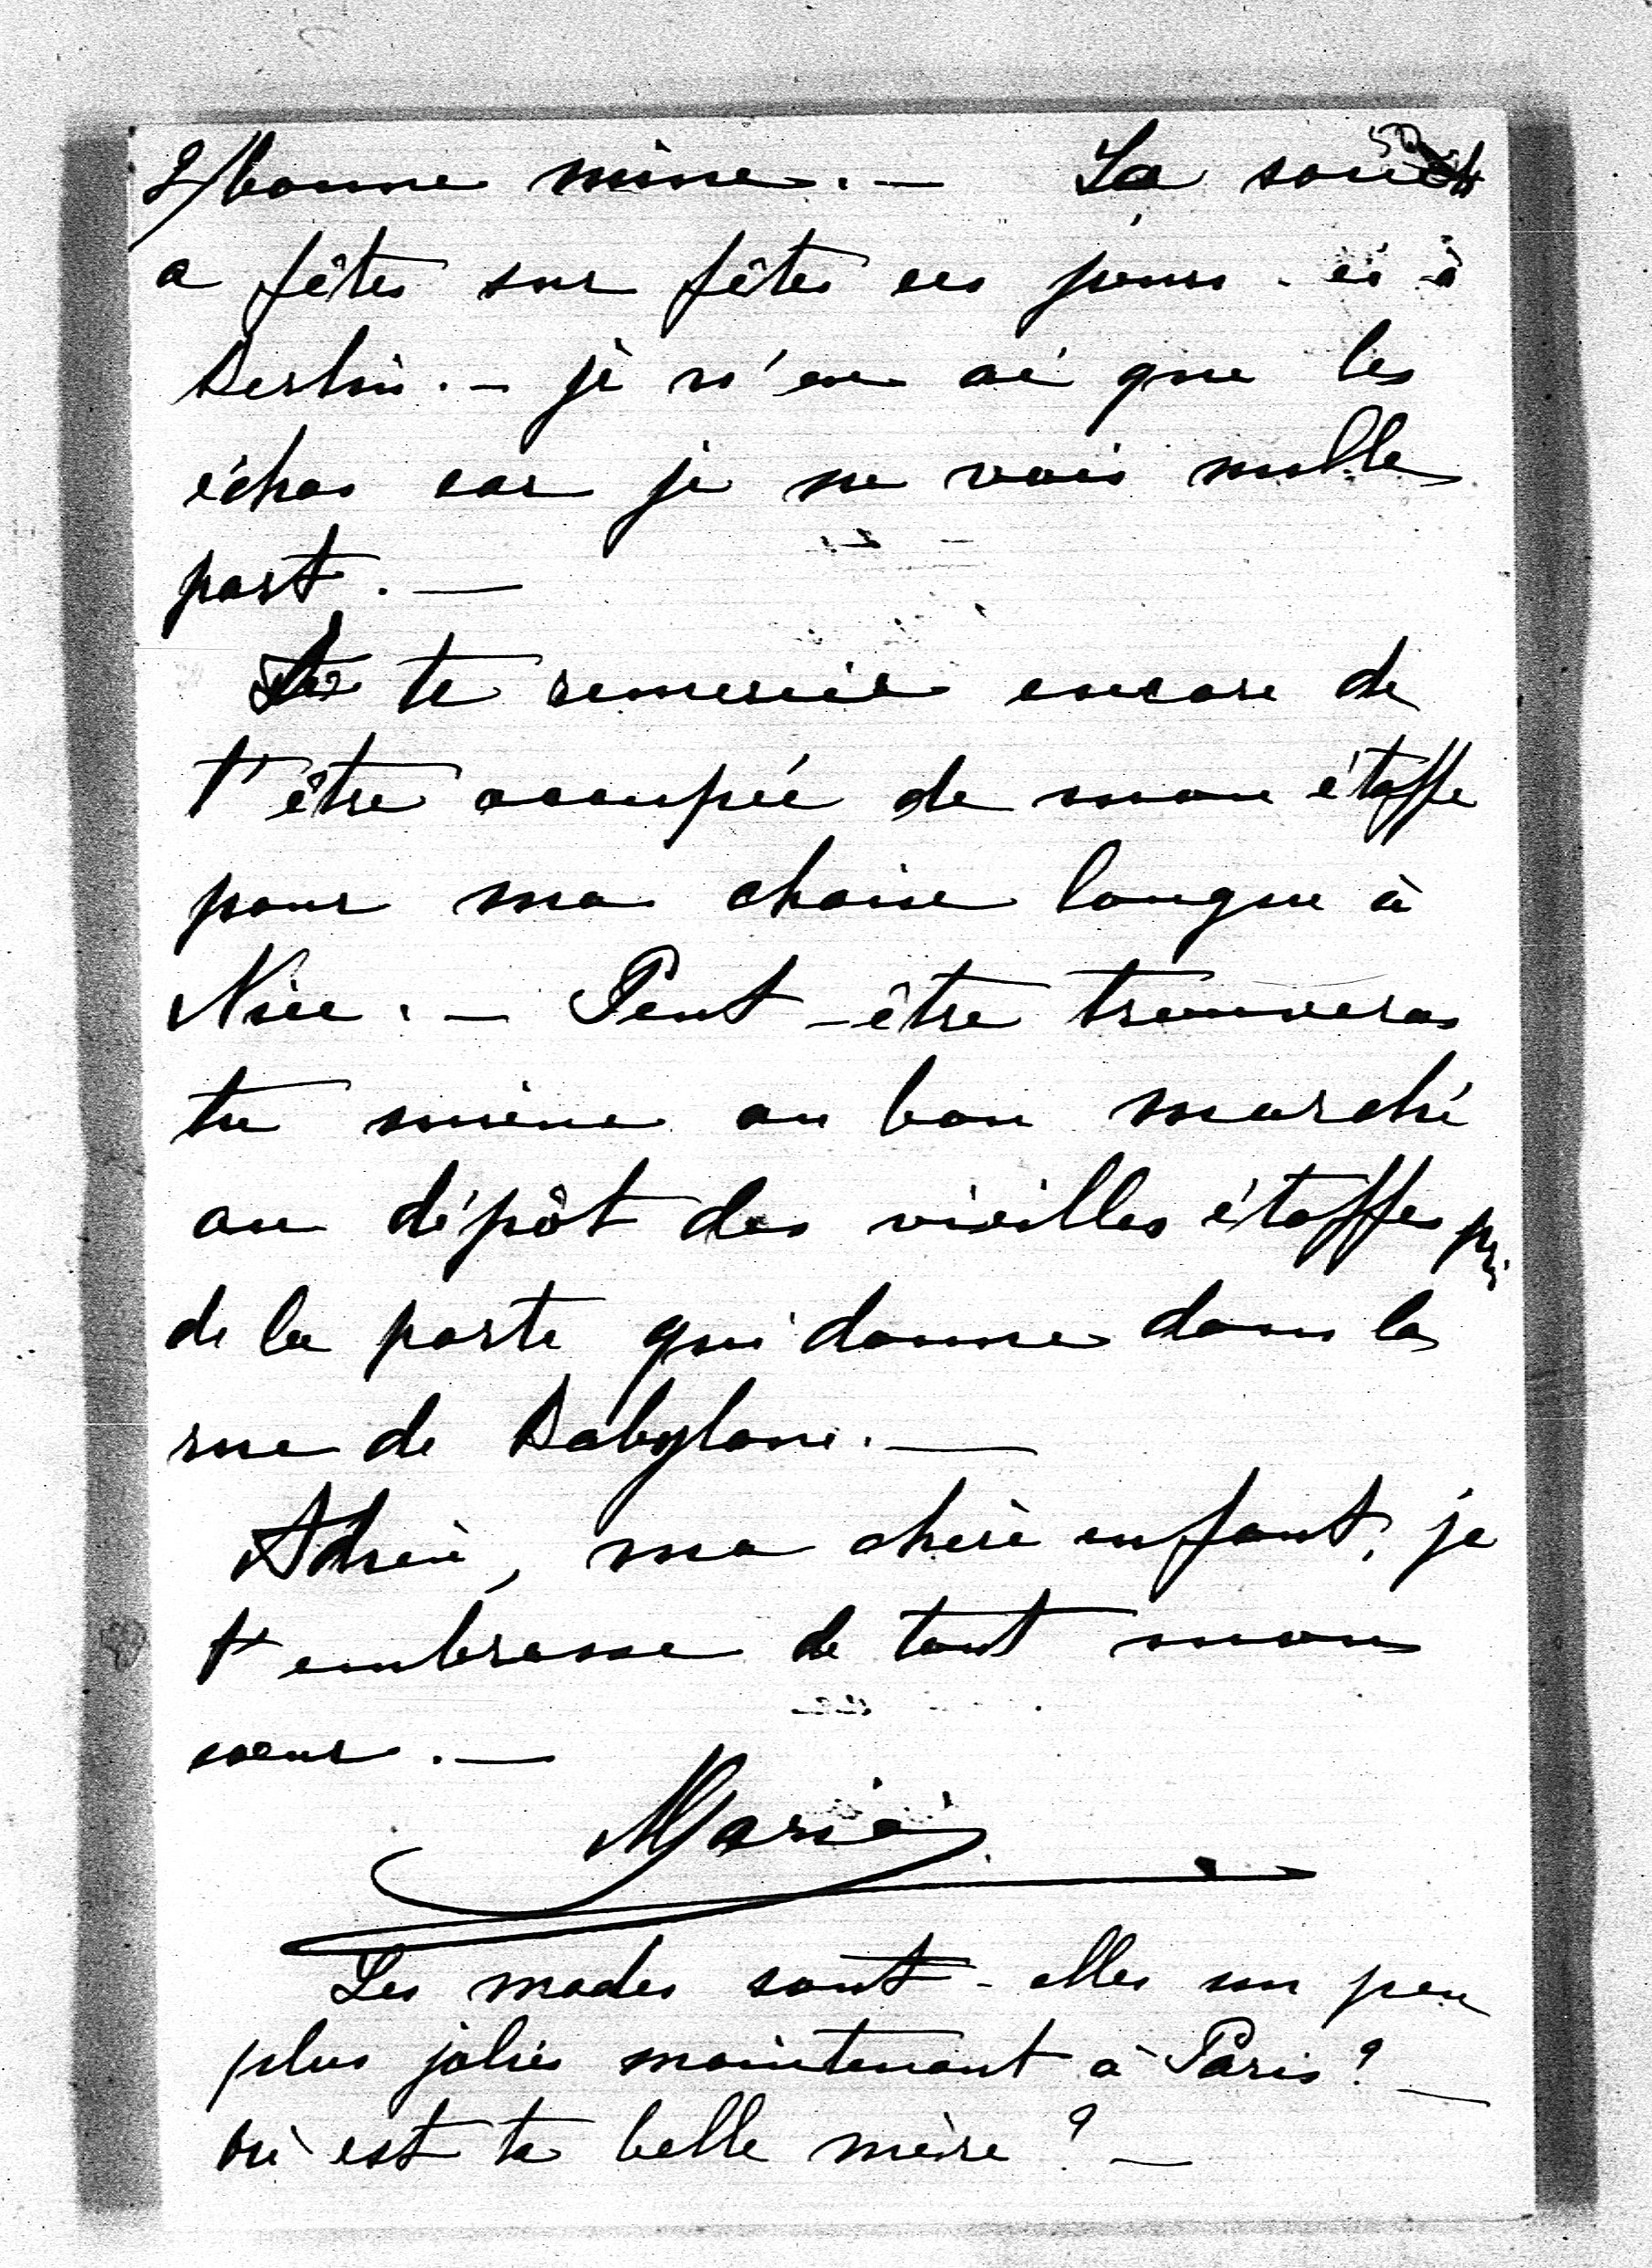 2/ bonne mine. — La société
a fêtes sur fêtes ces jours-ci à
Berlin. — je n'en ai que les
échos car je ne vais nulle
part. —
Je te remercie encore de
t'être occupée de mon étoffe
pour ma chaise longue à
Nice. — Peut-être trouveras
tu mieux au bon marché
au dépôt des vieilles étoffes près
de la porte qui donne dans la
rue de Babylone. —
Adieu, ma chère enfant, je
t'embrasse de tout mon
coeur. —
Marie
Les modes sont-elles un peu
plus jolies maintenant à Paris? —
où est ta belle mère? —